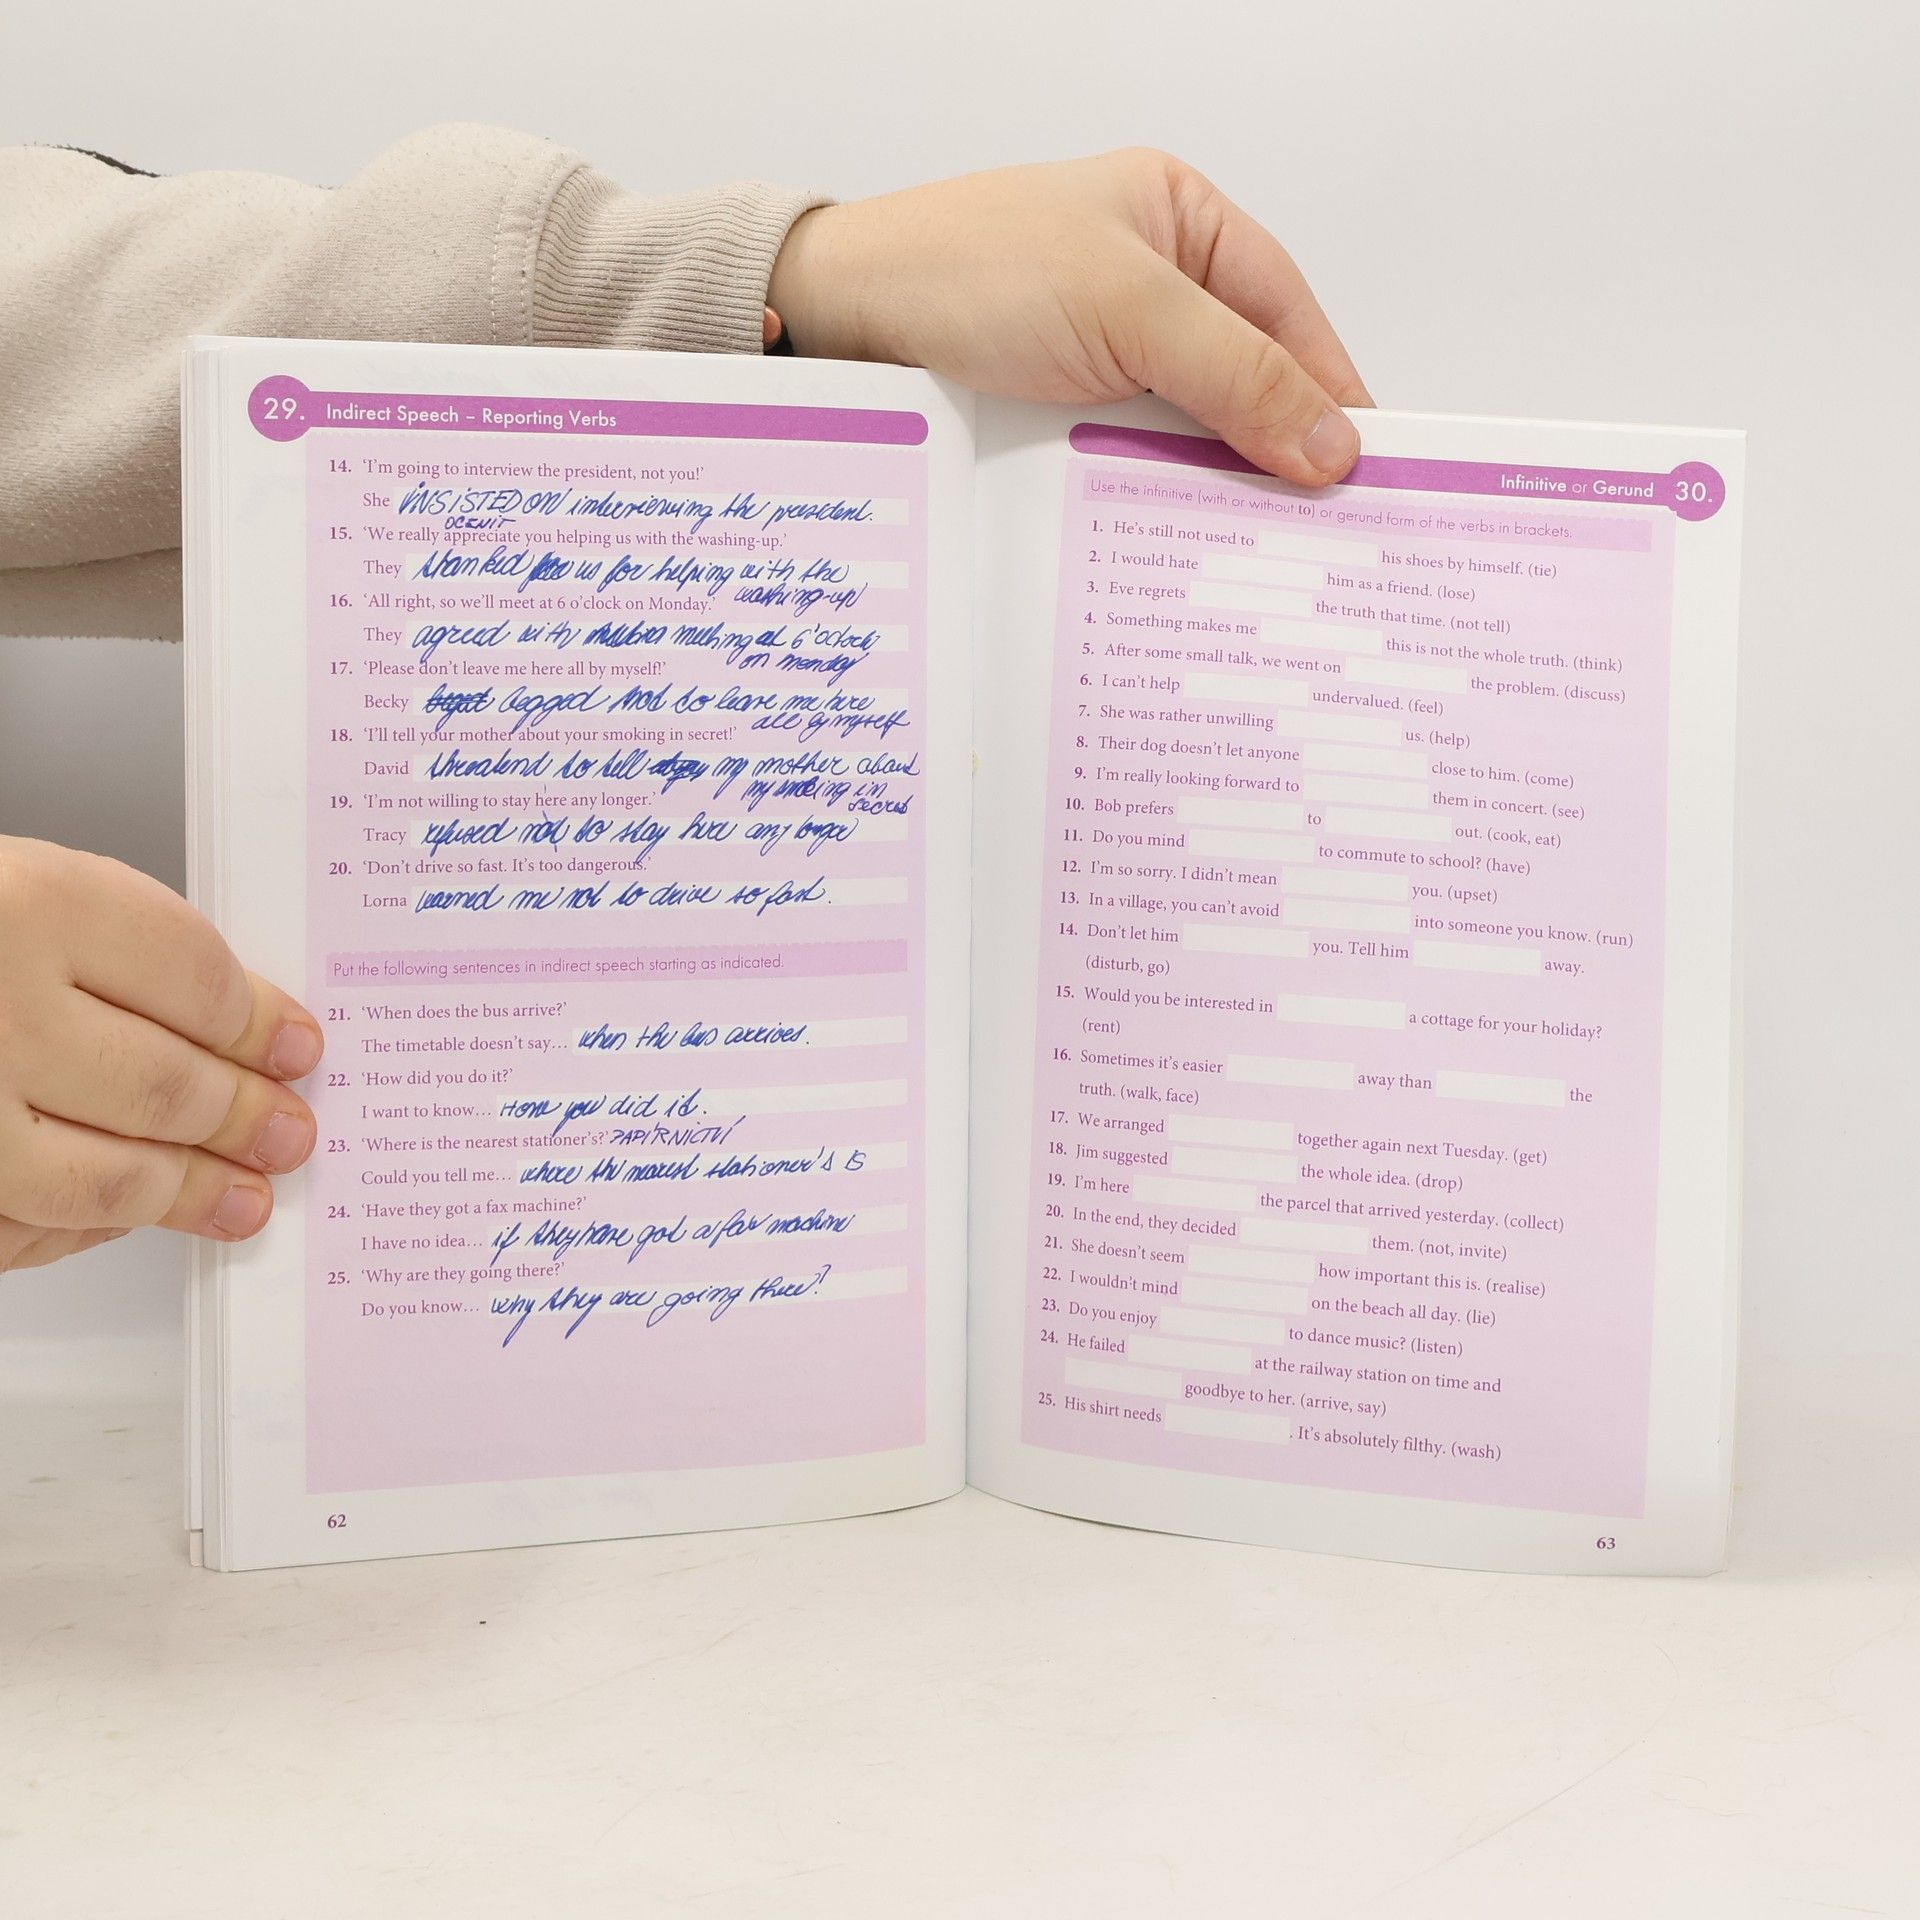 29. Indirect Speech – Reporting Verbs
14. ‘I’m going to interview the president, not you!’
She INSISTED ON interviewing the president.
OCENIT
15. ‘We really appreciate you helping us with the washing-up.’
They thanked us for helping with the
washing-up
16. ‘All right, so we’ll meet at 6 o’clock on Monday.’
They agreed with meeting at 6 o'clock
on monday
17. ‘Please don’t leave me here all by myself!’
Becky begged not to leave me here
all by myself
18. ‘I’ll tell your mother about your smoking in secret!’
David threatend to tell my mother about
my smoking in
secret
19. ‘I’m not willing to stay here any longer.’
Tracy refused not to stay here any longer
20. ‘Don’t drive so fast. It’s too dangerous.’
Lorna warned me not to drive so fast.
Put the following sentences in indirect speech starting as indicated.
21. ‘When does the bus arrive?’
The timetable doesn’t say… when the bus arrives.
22. ‘How did you do it?’
I want to know… How you did it.
23. ‘Where is the nearest stationer’s?’ PAPÍRNICTVÍ
Could you tell me… where the nearest stationer's IS
24. ‘Have they got a fax machine?’
I have no idea… if they have got a fax machine
25. ‘Why are they going there?’
Do you know… why they are going there?
62
Infinitive or Gerund 30.
Use the infinitive (with or without to) or gerund form of the verbs in brackets.
1. He’s still not used to his shoes by himself. (tie)
2. I would hate him as a friend. (lose)
3. Eve regrets the truth that time. (not tell)
4. Something makes me this is not the whole truth. (think)
5. After some small talk, we went on the problem. (discuss)
6. I can’t help undervalued. (feel)
7. She was rather unwilling us. (help)
8. Their dog doesn’t let anyone close to him. (come)
9. I’m really looking forward to them in concert. (see)
10. Bob prefers to out. (cook, eat)
11. Do you mind to commute to school? (have)
12. I’m so sorry. I didn’t mean you. (upset)
13. In a village, you can’t avoid into someone you know. (run)
14. Don’t let him you. Tell him away.
(disturb, go)
15. Would you be interested in a cottage for your holiday?
(rent)
16. Sometimes it’s easier away than the
truth. (walk, face)
17. We arranged together again next Tuesday. (get)
18. Jim suggested the whole idea. (drop)
19. I’m here the parcel that arrived yesterday. (collect)
20. In the end, they decided them. (not, invite)
21. She doesn’t seem how important this is. (realise)
22. I wouldn’t mind on the beach all day. (lie)
23. Do you enjoy to dance music? (listen)
24. He failed at the railway station on time and
goodbye to her. (arrive, say)
25. His shirt needs . It’s absolutely filthy. (wash)
63